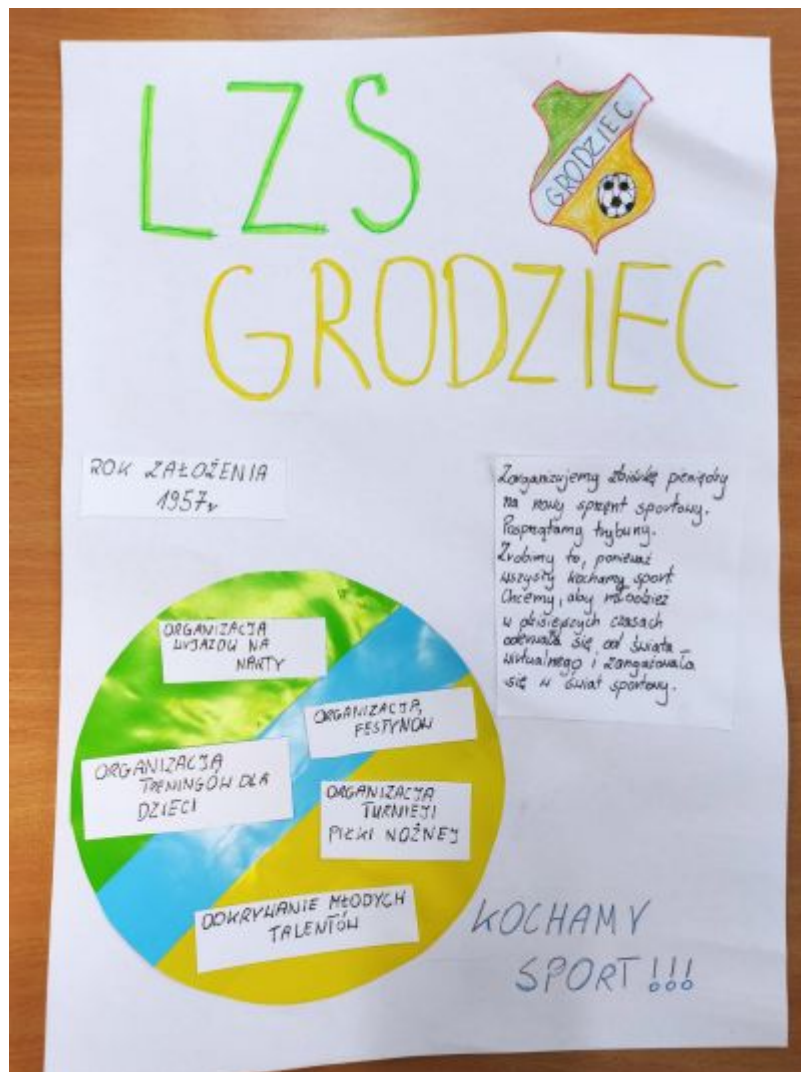 LZS
GRODZIEC
GRODZIEC
ROK ZAŁOŻENIA
1957r
Zorganizujemy zbiórkę pieniędzy
na nowy sprzęnt sportowy.
Posprzątamy trybuny.
Zrobimy to, ponieważ
wszyscy kochamy sport
Chcemy, aby młodzież
w dzisiejszych czasach
oderwała się od świata
wirtualnego i zangażowała
się w świat sportowy.
ORGANIZACJA
WYJAZDU NA
NARTY
ORGANIZACJA
FESTYNÓW
ORGANIZACJA
TRENINGÓW DLA
DZIECI
ORGANIZACJA
TURNIEJI
PIŁKI NOŻNEJ
ODKRYWANIE MŁODYCH
TALENTÓW
KOCHAMY
SPORT!!!